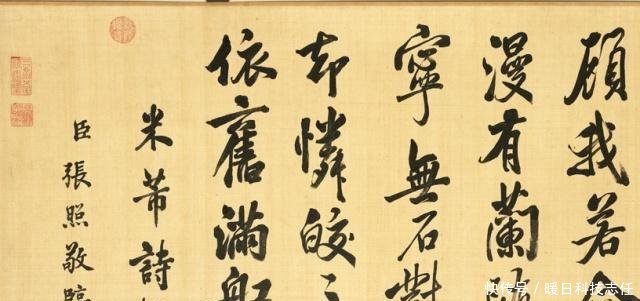 顧我若
漫有蘭
寧無石對
却憐皎
依舊滿船
米芾詩
臣張照敬臨
快传号/暖日科技志任